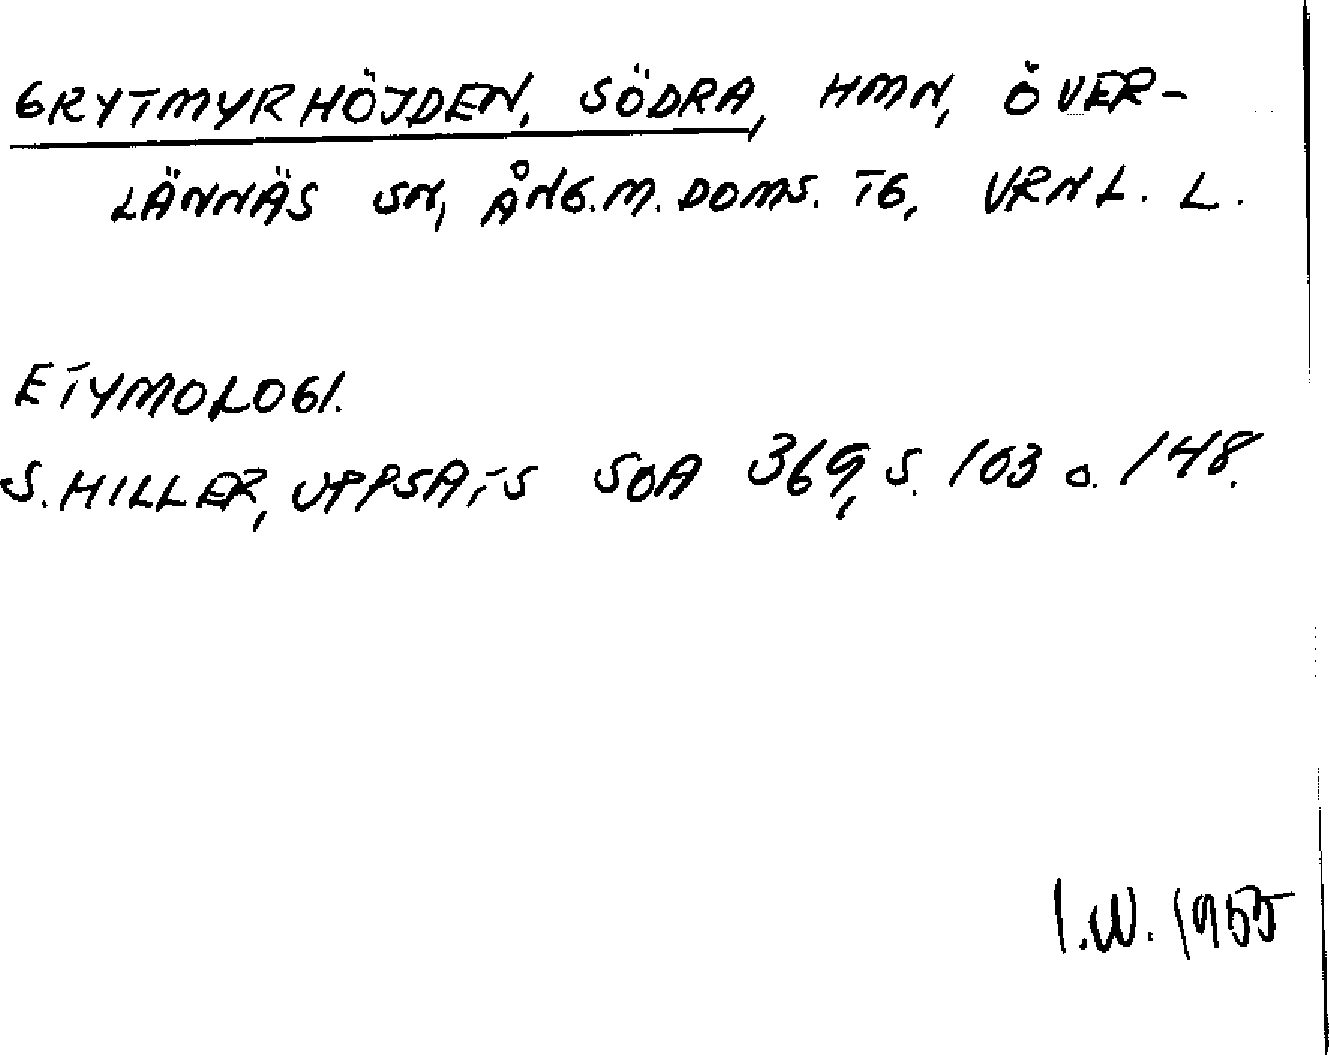 GRYTMYRHÖJDEN, SÖDRA, HMN, ÖVER-
LÄNNÄS SN, ÅNG.M. DOMS. TG, VRNL. L.
ETYMOLOGI.
S. HILLER, UPPSATS SOA 369, S. 103 o. 148.
I.W. 1955